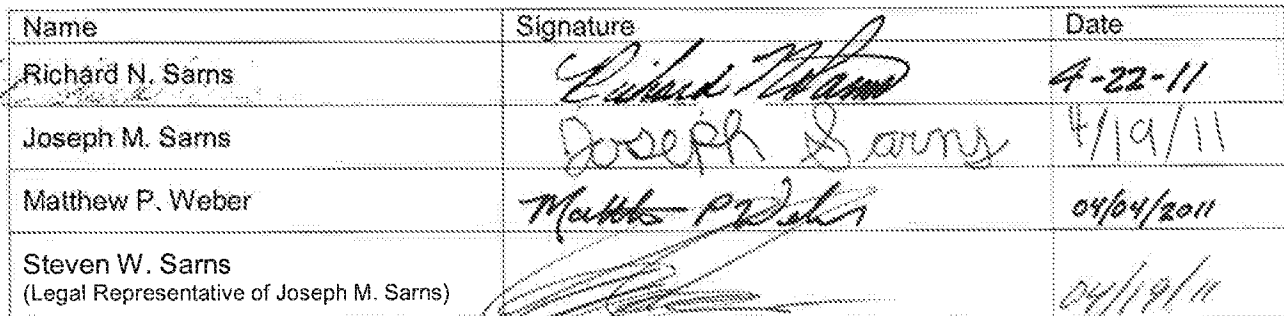 Name Signature Date
Richard N. Sarns Richard N Sarns 4-22-11
Joseph M. Sarns Joseph Sarns 4/19/11
Matthew P. Weber Matth P Weber 04/04/2011
Steven W. Sarns 04/19/11
(Legal Representative of Joseph M. Sarns)